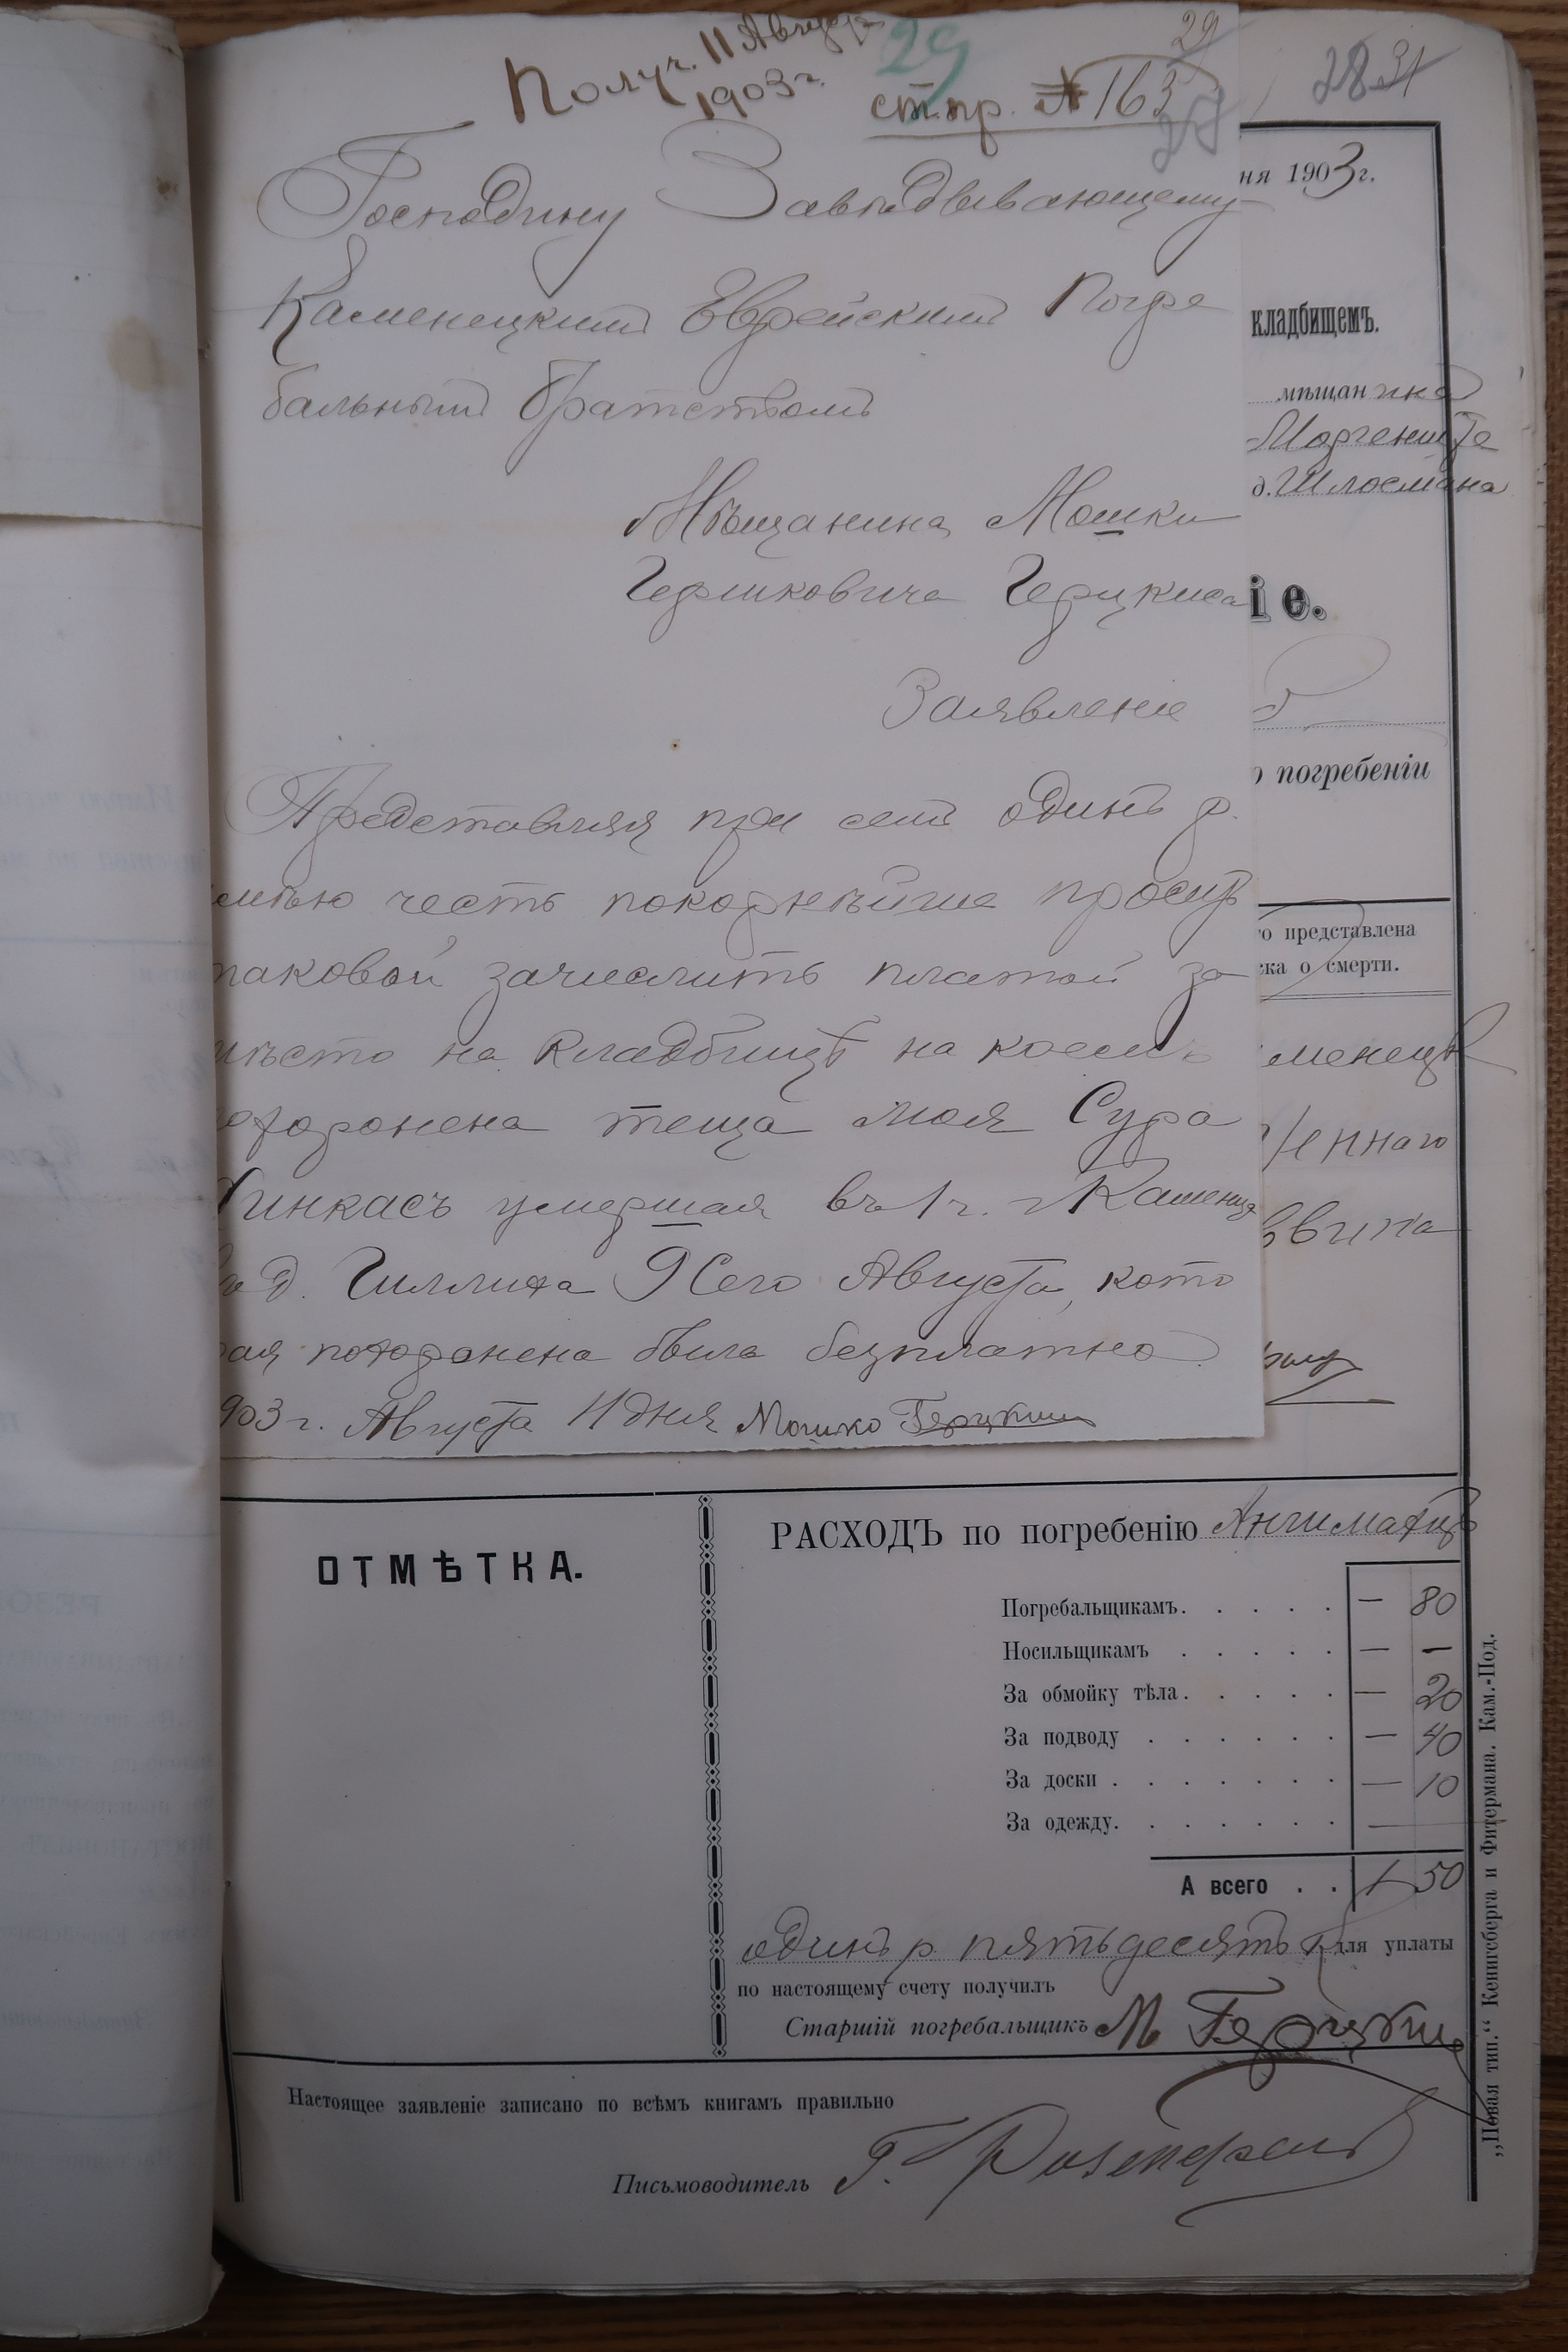 Получ. 11 Августа
1903 г.
29
29
стр. № 163
28 31
Господину Завѣдывающему
Каменецкимъ Еврейскимъ Погре
бальнымъ Братствомъ
Мѣщанина Мошки
Гершковича Герцкиса
Заявленіе
Представляя при семъ одинъ р.
имѣю честь покорнѣйше просить
таковой зачислить платой за
мѣсто на кладбищѣ на коемъ
похоронена теща моя Сура
умершая въ 1 ч. г. Каменца
въ д. Гиллиха 9 Сего Августа, кото
рая похоронена была безплатно
1903 г. Августа 11 дня Мошко Герцкис
ня 1903 г.
кладбищемъ.
мѣщанина
д. Шлосмана
іе.
о погребеніи
го представлена
ска о смерти.
менецъ
ннаго
ОТМѢТКА.
РАСХОДЪ по погребенію
Погребальщикамъ. — 80
Носильщикамъ — —
За обмойку тѣла. — 20
За подводу — 40
За доски . — 10
За одежду. —
А всего . . 1 50
одинъ р. пятьдесятъ к. для уплаты
по настоящему счету получилъ
Старшій погребальщикъ М Герцкис
Настоящее заявленіе записано по всѣмъ книгамъ правильно
Письмоводитель Г. Розенфельд
„Новая тип.“ Кенигсберга и Фитермана. Кам.-Под.